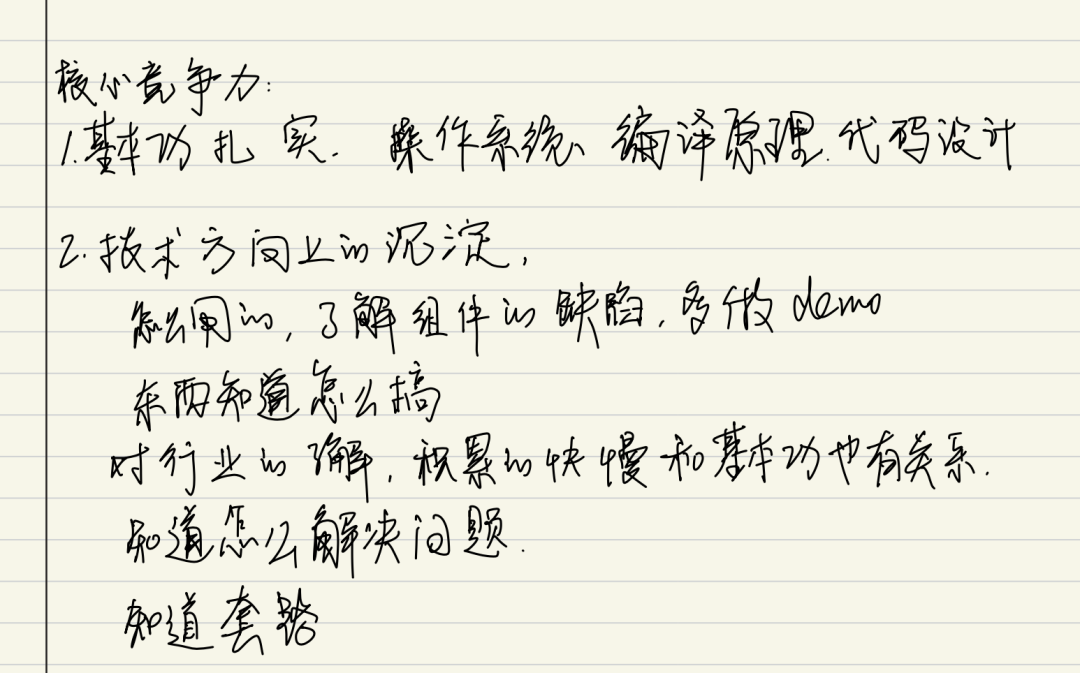 核心竞争力:
1.基本功扎实. 操作系统、编译原理.代码设计
2.技术方向上的沉淀,
怎么用的,了解组件的缺陷,多做demo
东西知道怎么搞
对行业的理解,积累的快慢和基本功也有关系.
知道怎么解决问题.
知道套路